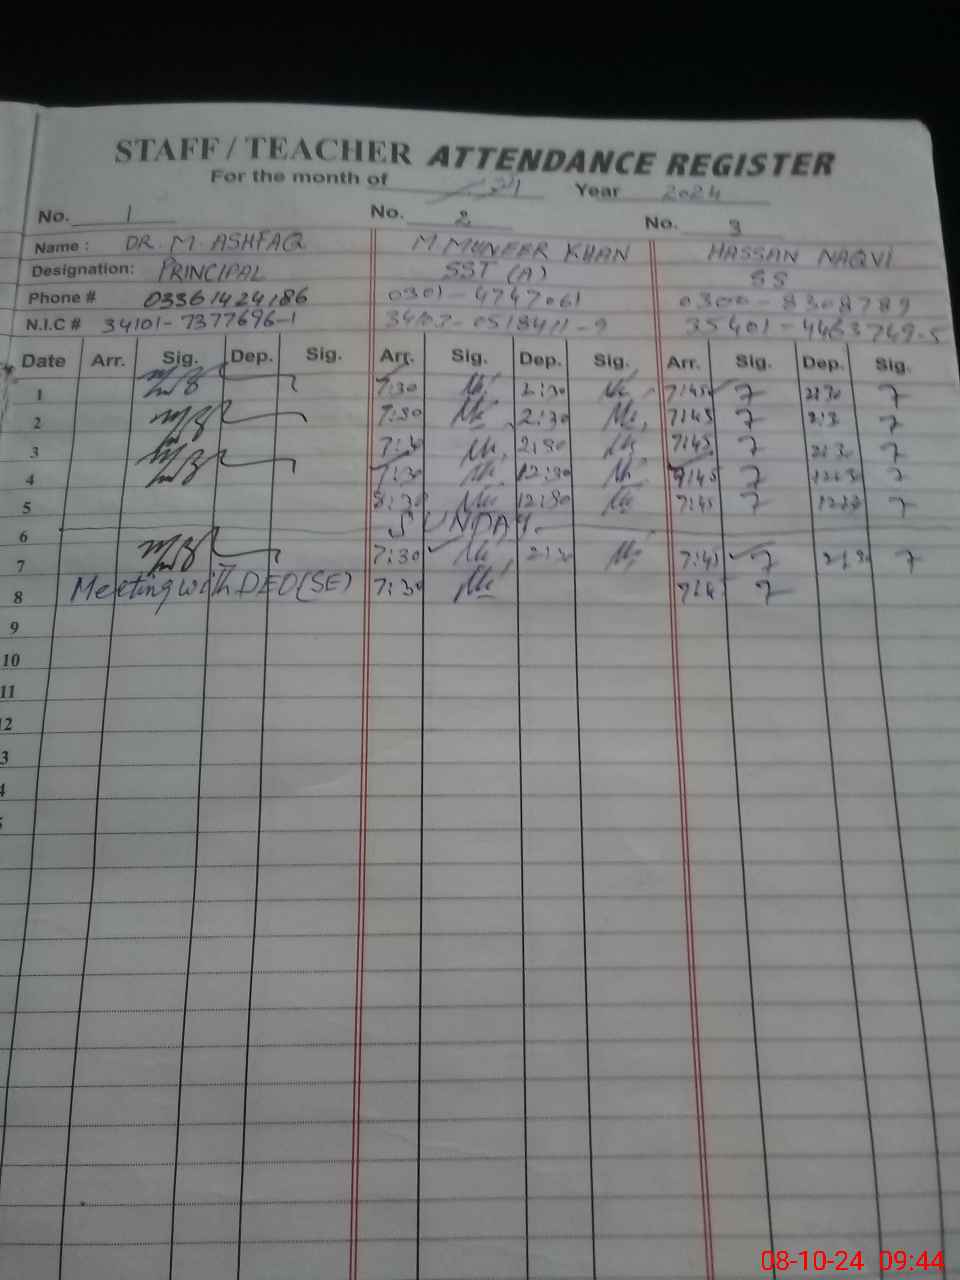 STAFF / TEACHER ATTENDANCE REGISTER
For the month of Year 2024
No. 1 No. 2 No. 3
Name : DR. M. ASHFAQ M. MUNEER KHAN HASSAN NAQVI
Designation: PRINCIPAL SST (A) SS
Phone # 03361424186 0301-4747061 0300-8308789
N.I.C # 34101-7377696-1 35401-4463749-5
Date Arr. Sig. Dep. Sig. Arr. Sig. Dep. Sig. Arr. Sig. Dep. Sig.
1 7:30 2:30 7:45
2 7:30 2:30 7:45
3 7:30 2:30 7:45
4 7:30 12:30 7:45
5 8:30 12:30 7:45
6 SUNDAY
7 7:30 2:30 7:45 2:30
8 Meeting with DEO(SE) 7:30
9
10
11
12
3
4
5
08-10-24 09:44